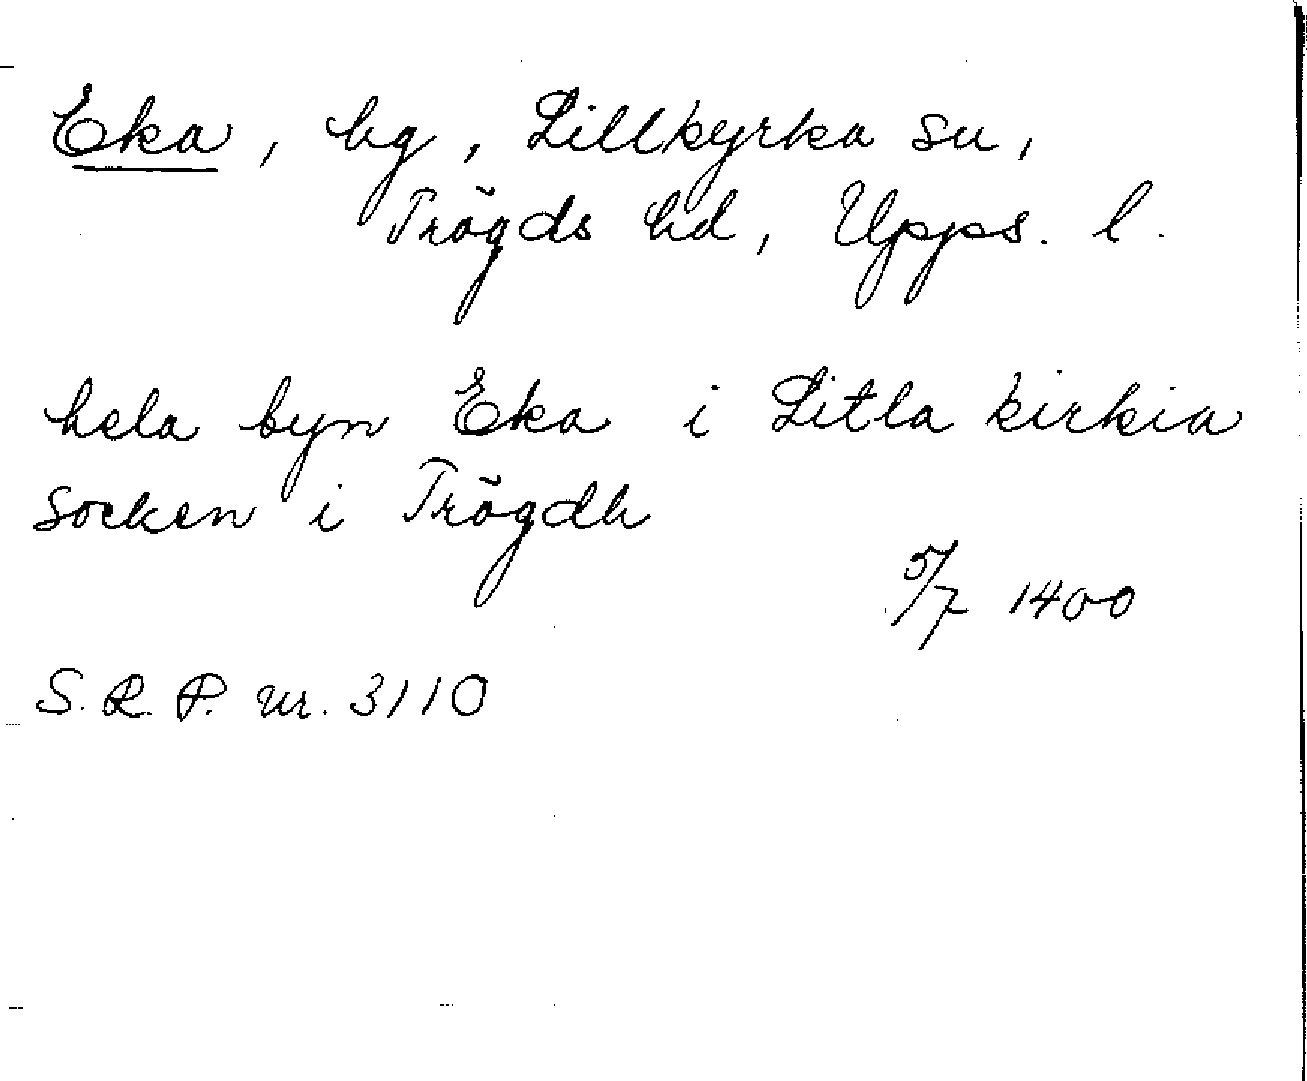 Eka, hg, Lillkyrka sn,
Trögds hd, Upps. l.
hela byn Eka i Litla kirkia
socken i Trögdh
5/7 1400
S.R.P. nr. 3110